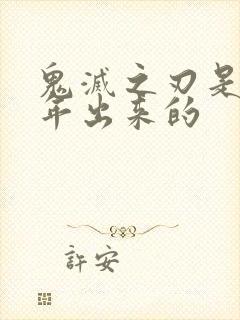 鬼滅之刃是
年出来的
許安